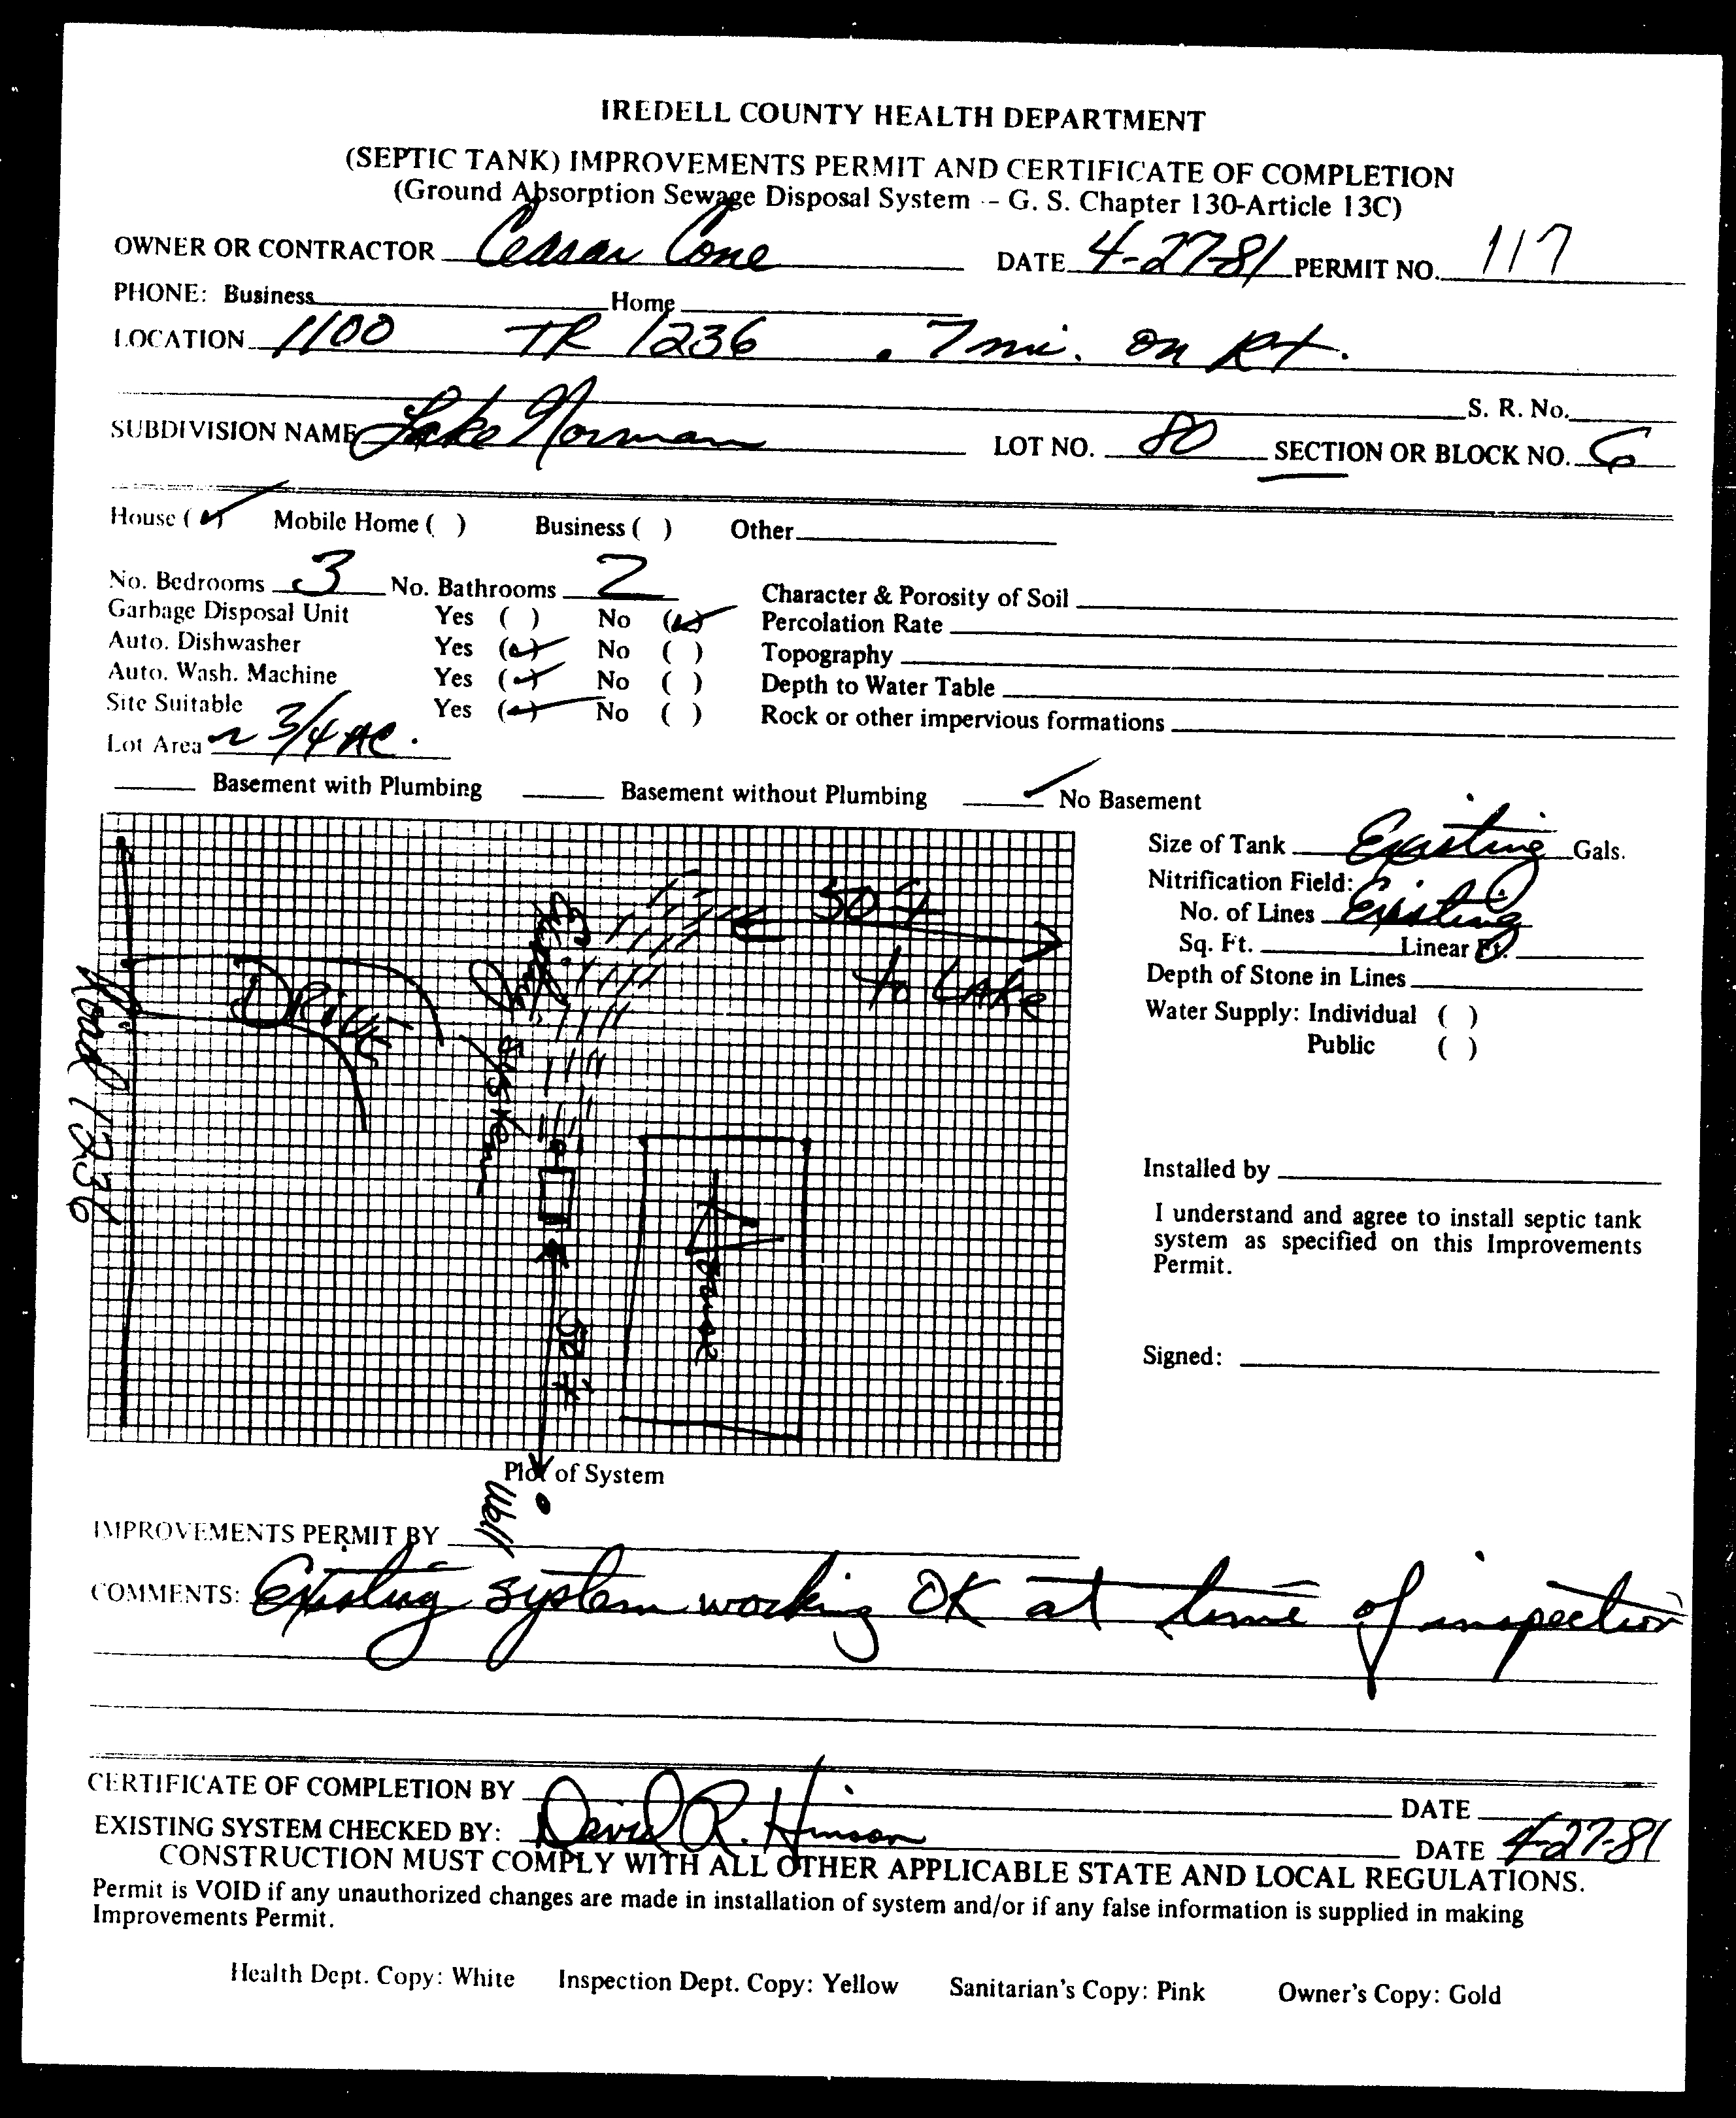 IREDELL COUNTY HEALTH DEPARTMENT
(SEPTIC TANK) IMPROVEMENTS PERMIT AND CERTIFICATE OF COMPLETION
(Ground Absorption Sewage Disposal System -- G. S. Chapter 130-Article 13C)
OWNER OR CONTRACTOR Ceasar Cone DATE 4-27-81 PERMIT NO. 117
PHONE: Business Home
LOCATION 1100 TR 1236 .7 mi. on Rt.
S. R. No.
SUBDIVISION NAME Lake Norman LOT NO. 80 SECTION OR BLOCK NO. 6
House ( ) Mobile Home ( ) Business ( ) Other
No. Bedrooms 3 No. Bathrooms 2 Character & Porosity of Soil
Garbage Disposal Unit Yes ( ) No ( ) Percolation Rate
Auto. Dishwasher Yes ( ) No ( ) Topography
Auto. Wash. Machine Yes ( ) No ( ) Depth to Water Table
Site Suitable Yes ( ) No ( ) Rock or other impervious formations
Lot Area ~ 3/4 AC.
Basement with Plumbing Basement without Plumbing No Basement
Size of Tank Existing Gals.
Nitrification Field:
No. of Lines Existing
Sq. Ft. Linear Ft.
Depth of Stone in Lines
Water Supply: Individual ( )
Public ( )
50 ft
to LAKE
Drive
Existing
System
Road 1236
House
50 ft
Well
Installed by
I understand and agree to install septic tank
system as specified on this Improvements
Permit.
Signed:
Plot of System
IMPROVEMENTS PERMIT BY
COMMENTS: Existing system working OK at time of inspection
CERTIFICATE OF COMPLETION BY DATE
EXISTING SYSTEM CHECKED BY: David R. Hinson DATE 4-27-81
CONSTRUCTION MUST COMPLY WITH ALL OTHER APPLICABLE STATE AND LOCAL REGULATIONS.
Permit is VOID if any unauthorized changes are made in installation of system and/or if any false information is supplied in making
Improvements Permit.
Health Dept. Copy: White Inspection Dept. Copy: Yellow Sanitarian's Copy: Pink Owner's Copy: Gold